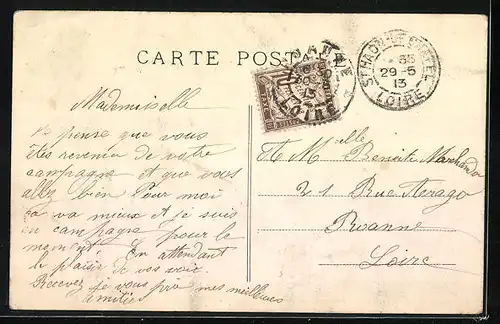 CARTE POSTALE
ST HAON-LE-CHATEL
* 35
29-5
13
LOIRE
Mademoiselle
Je pense que vous
êtes revenue de votre
campagne et que vous
allez bien Pour moi
ça va mieux et je suis
en campagne pour le
moment. En attendant
le plaisir de vous voir.
Recevez je vous prie mes meilleures
amitiés
A Melle Benoite Marchand
21 Rue Arago
Roanne
Loire